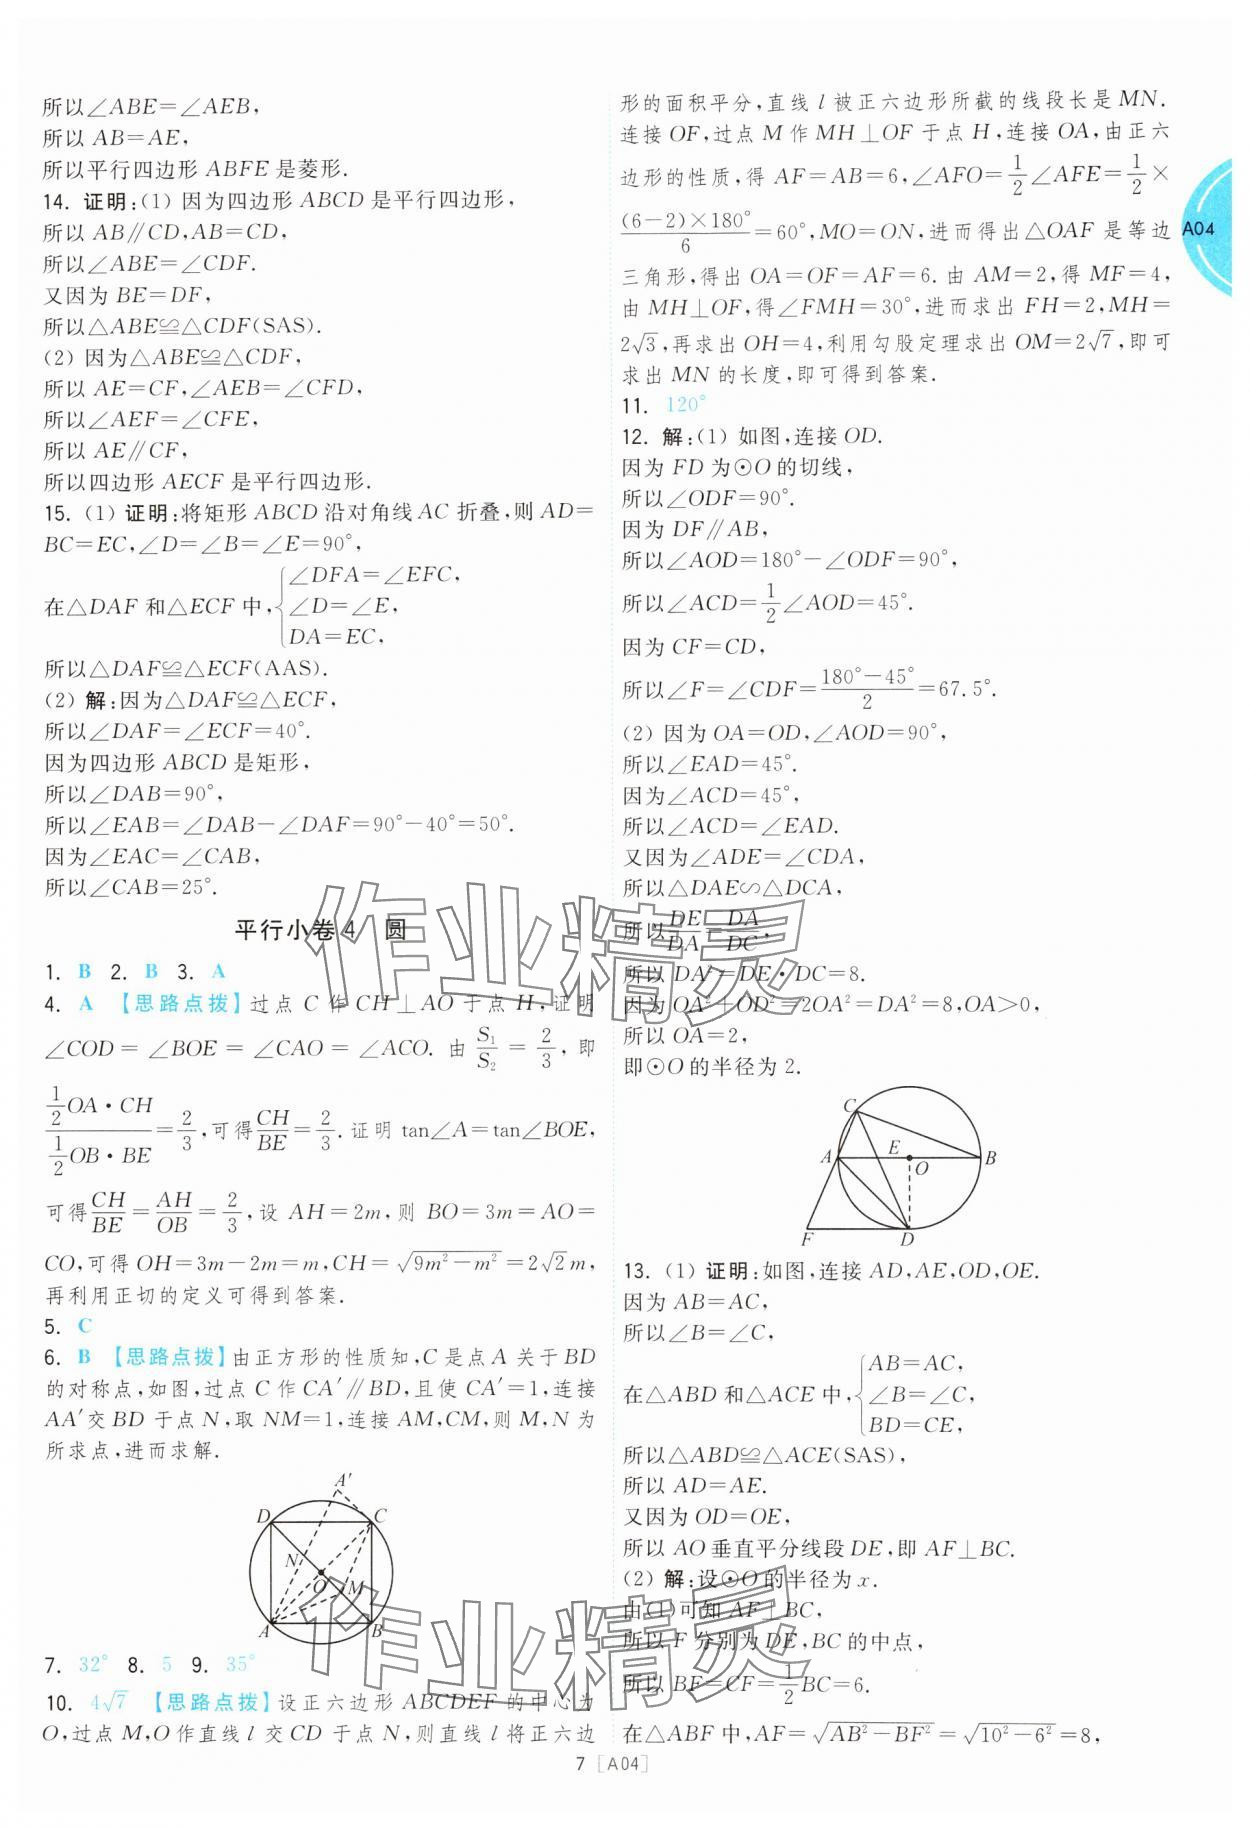 所以∠ABE=∠AEB,
所以 AB=AE,
所以平行四边形 ABFE 是菱形.
14. 证明:(1) 因为四边形 ABCD 是平行四边形,
所以 AB∥CD,AB=CD,
所以∠ABE=∠CDF.
又因为 BE=DF,
所以△ABE≌△CDF(SAS).
(2) 因为△ABE≌△CDF,
所以 AE=CF,∠AEB=∠CFD,
所以∠AEF=∠CFE,
所以 AE∥CF,
所以四边形 AECF 是平行四边形.
15. (1) 证明:将矩形 ABCD 沿对角线 AC 折叠,则 AD=
BC=EC,∠D=∠B=∠E=90°,
在△DAF 和△ECF 中,{∠DFA=∠EFC,
∠D=∠E,
DA=EC,
所以△DAF≌△ECF(AAS).
(2) 解:因为△DAF≌△ECF,
所以∠DAF=∠ECF=40°.
因为四边形 ABCD 是矩形,
所以∠DAB=90°,
所以∠EAB=∠DAB-∠DAF=90°-40°=50°.
因为∠EAC=∠CAB,
所以∠CAB=25°.
平行小卷 4 圆
1. B 2. B 3. A
4. A 【思路点拨】过点 C 作 CH⊥AO 于点 H,证明
∠COD=∠BOE=∠CAO=∠ACO. 由 S₁/S₂=2/3,即
(1/2 OA·CH)/(1/2 OB·BE)=2/3,可得 CH/BE=2/3.证明 tan∠A=tan∠BOE,
可得 CH/BE=AH/OB=2/3,设 AH=2m,则 BO=3m=AO=
CO,可得 OH=3m-2m=m,CH=√(9m²-m²)=2√2m,
再利用正切的定义可得到答案.
5. C
6. B 【思路点拨】由正方形的性质知,C 是点 A 关于 BD
的对称点,如图,过点 C 作 CA′∥BD,且使 CA′=1,连接
AA′交 BD 于点 N,取 NM=1,连接 AM,CM,则 M,N 为
所求点,进而求解.
A′
D C
N
O
M
A B
7. 32° 8. 5 9. 35°
10. 4√7 【思路点拨】设正六边形 ABCDEF 的中心为
O,过点 M,O 作直线 l 交 CD 于点 N,则直线 l 将正六边
形的面积平分,直线 l 被正六边形所截的线段长是 MN.
连接 OF,过点 M 作 MH⊥OF 于点 H,连接 OA,由正六
边形的性质,得 AF=AB=6,∠AFO=1/2∠AFE=1/2×
(6-2)×180°/6=60°,MO=ON,进而得出△OAF 是等边
三角形,得出 OA=OF=AF=6. 由 AM=2,得 MF=4,
由 MH⊥OF,得∠FMH=30°,进而求出 FH=2,MH=
2√3,再求出 OH=4,利用勾股定理求出 OM=2√7,即可
求出 MN 的长度,即可得到答案.
11. 120°
12. 解:(1) 如图,连接 OD.
因为 FD 为⊙O 的切线,
所以∠ODF=90°.
因为 DF∥AB,
所以∠AOD=180°-∠ODF=90°,
所以∠ACD=1/2∠AOD=45°.
因为 CF=CD,
所以∠F=∠CDF=(180°-45°)/2=67.5°.
(2) 因为 OA=OD,∠AOD=90°,
所以∠EAD=45°.
因为∠ACD=45°,
所以∠ACD=∠EAD.
又因为∠ADE=∠CDA,
所以△DAE∽△DCA,
所以 DE/DA=DA/DC,
所以 DA²=DE·DC=8.
因为 OA²+OD²=2OA²=DA²=8,OA>0,
所以 OA=2,
即⊙O 的半径为 2.
C
A E O B
F D
13. (1) 证明:如图,连接 AD,AE,OD,OE.
因为 AB=AC,
所以∠B=∠C,
在△ABD 和△ACE 中,{AB=AC,
∠B=∠C,
BD=CE,
所以△ABD≌△ACE(SAS),
所以 AD=AE.
又因为 OD=OE,
所以 AO 垂直平分线段 DE,即 AF⊥BC.
(2) 解:设⊙O 的半径为 x.
由(1)可知 AF⊥BC,
所以 F 分别为 DE,BC 的中点,
所以 BF=CF=1/2BC=6.
在△ABF 中,AF=√(AB²-BF²)=√(10²-6²)=8,
A04
7 [A04]
作业精灵
作业精灵